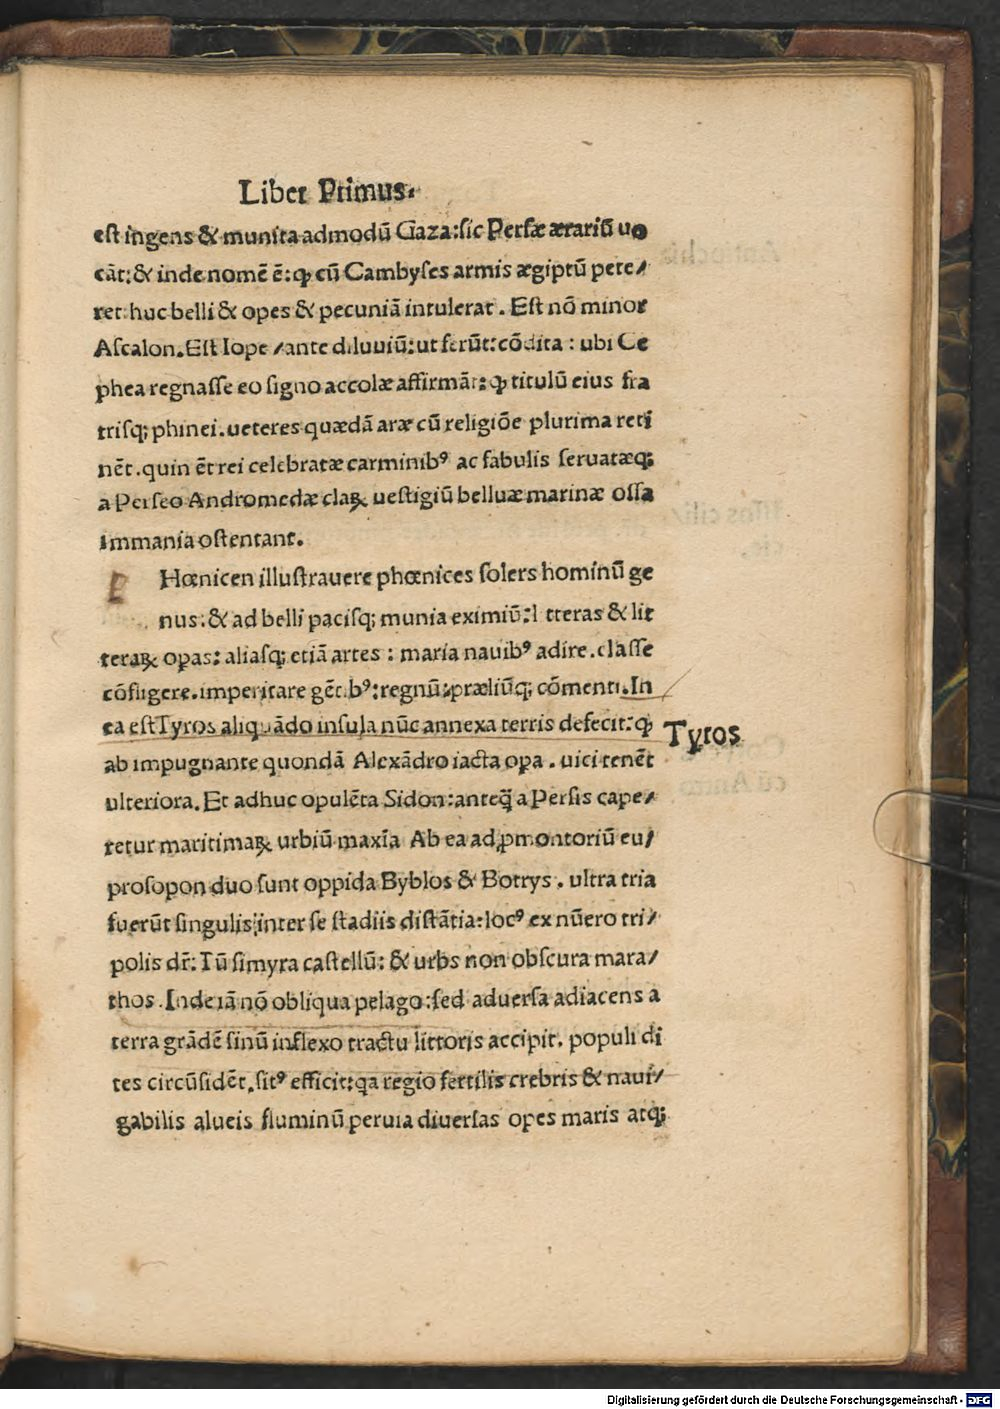 Liber Primus.
est ingens & munita admodū Gaza: sic Persæ ærariū uo
cāt: & inde nomē ē: ꝙ cū Cambyses armis ægiptū pete/
ret: huc belli & opes & pecuniā intulerat. Est nō minor
Ascalon. Est Iope /ante diluuiū: ut ferūt: cōdita: ubi Ce
phea regnasse eo signo accolæ affirmāt: ꝙ titulū eius fra
trisq; phinei. ueteres quædā aræ cū religiōe plurima reti
nēt. quin ēt rei celebratæ carminibꝰ ac fabulis seruatæq;
a Perseo Andromedæ claꝝ uestigiū belluæ marinæ ossa
immania ostentant.
P Hœnicen illustrauere phœnices solers hominū ge
nus: & ad belli pacisq; munia eximiū: l tteras & lit
teraꝝ oꝑas: aliasq; etiā artes: maria nauibꝰ adire. classe
cōfligere. imperitare gētibꝰ: regnū: præliūq; cōmenti. In
ea est Tyros aliquādo insula nūc annexa terris defecit: ꝙ
Tyros
ab impugnante quondā Alexādro iacta oꝑa. uici tenēt
ulteriora. Et adhuc opulēta Sidon: anteq̄ a Persis cape/
retur maritimaꝝ urbiū maxīa Ab ea ad ꝓmontoriū eu/
prosopon duo sunt oppida Byblos & Botrys. ultra tria
fuerūt singulis inter se stadiis distātia: locꝰ ex nūero tri/
polis dr̄: Tū simyra castellū: & urbs non obscura mara/
thos. Inde iā nō obliqua pelago: sed aduersa adiacens a
terra grādē sinū inflexo tractu littoris accipit. populi di
tes circūsidēt. sitꝰ efficit: qa regio fertilis crebris & naui/
gabilis alueis fluminū peruia diuersas opes maris atq;
Digitalisierung gefördert durch die Deutsche Forschungsgemeinschaft - DFG